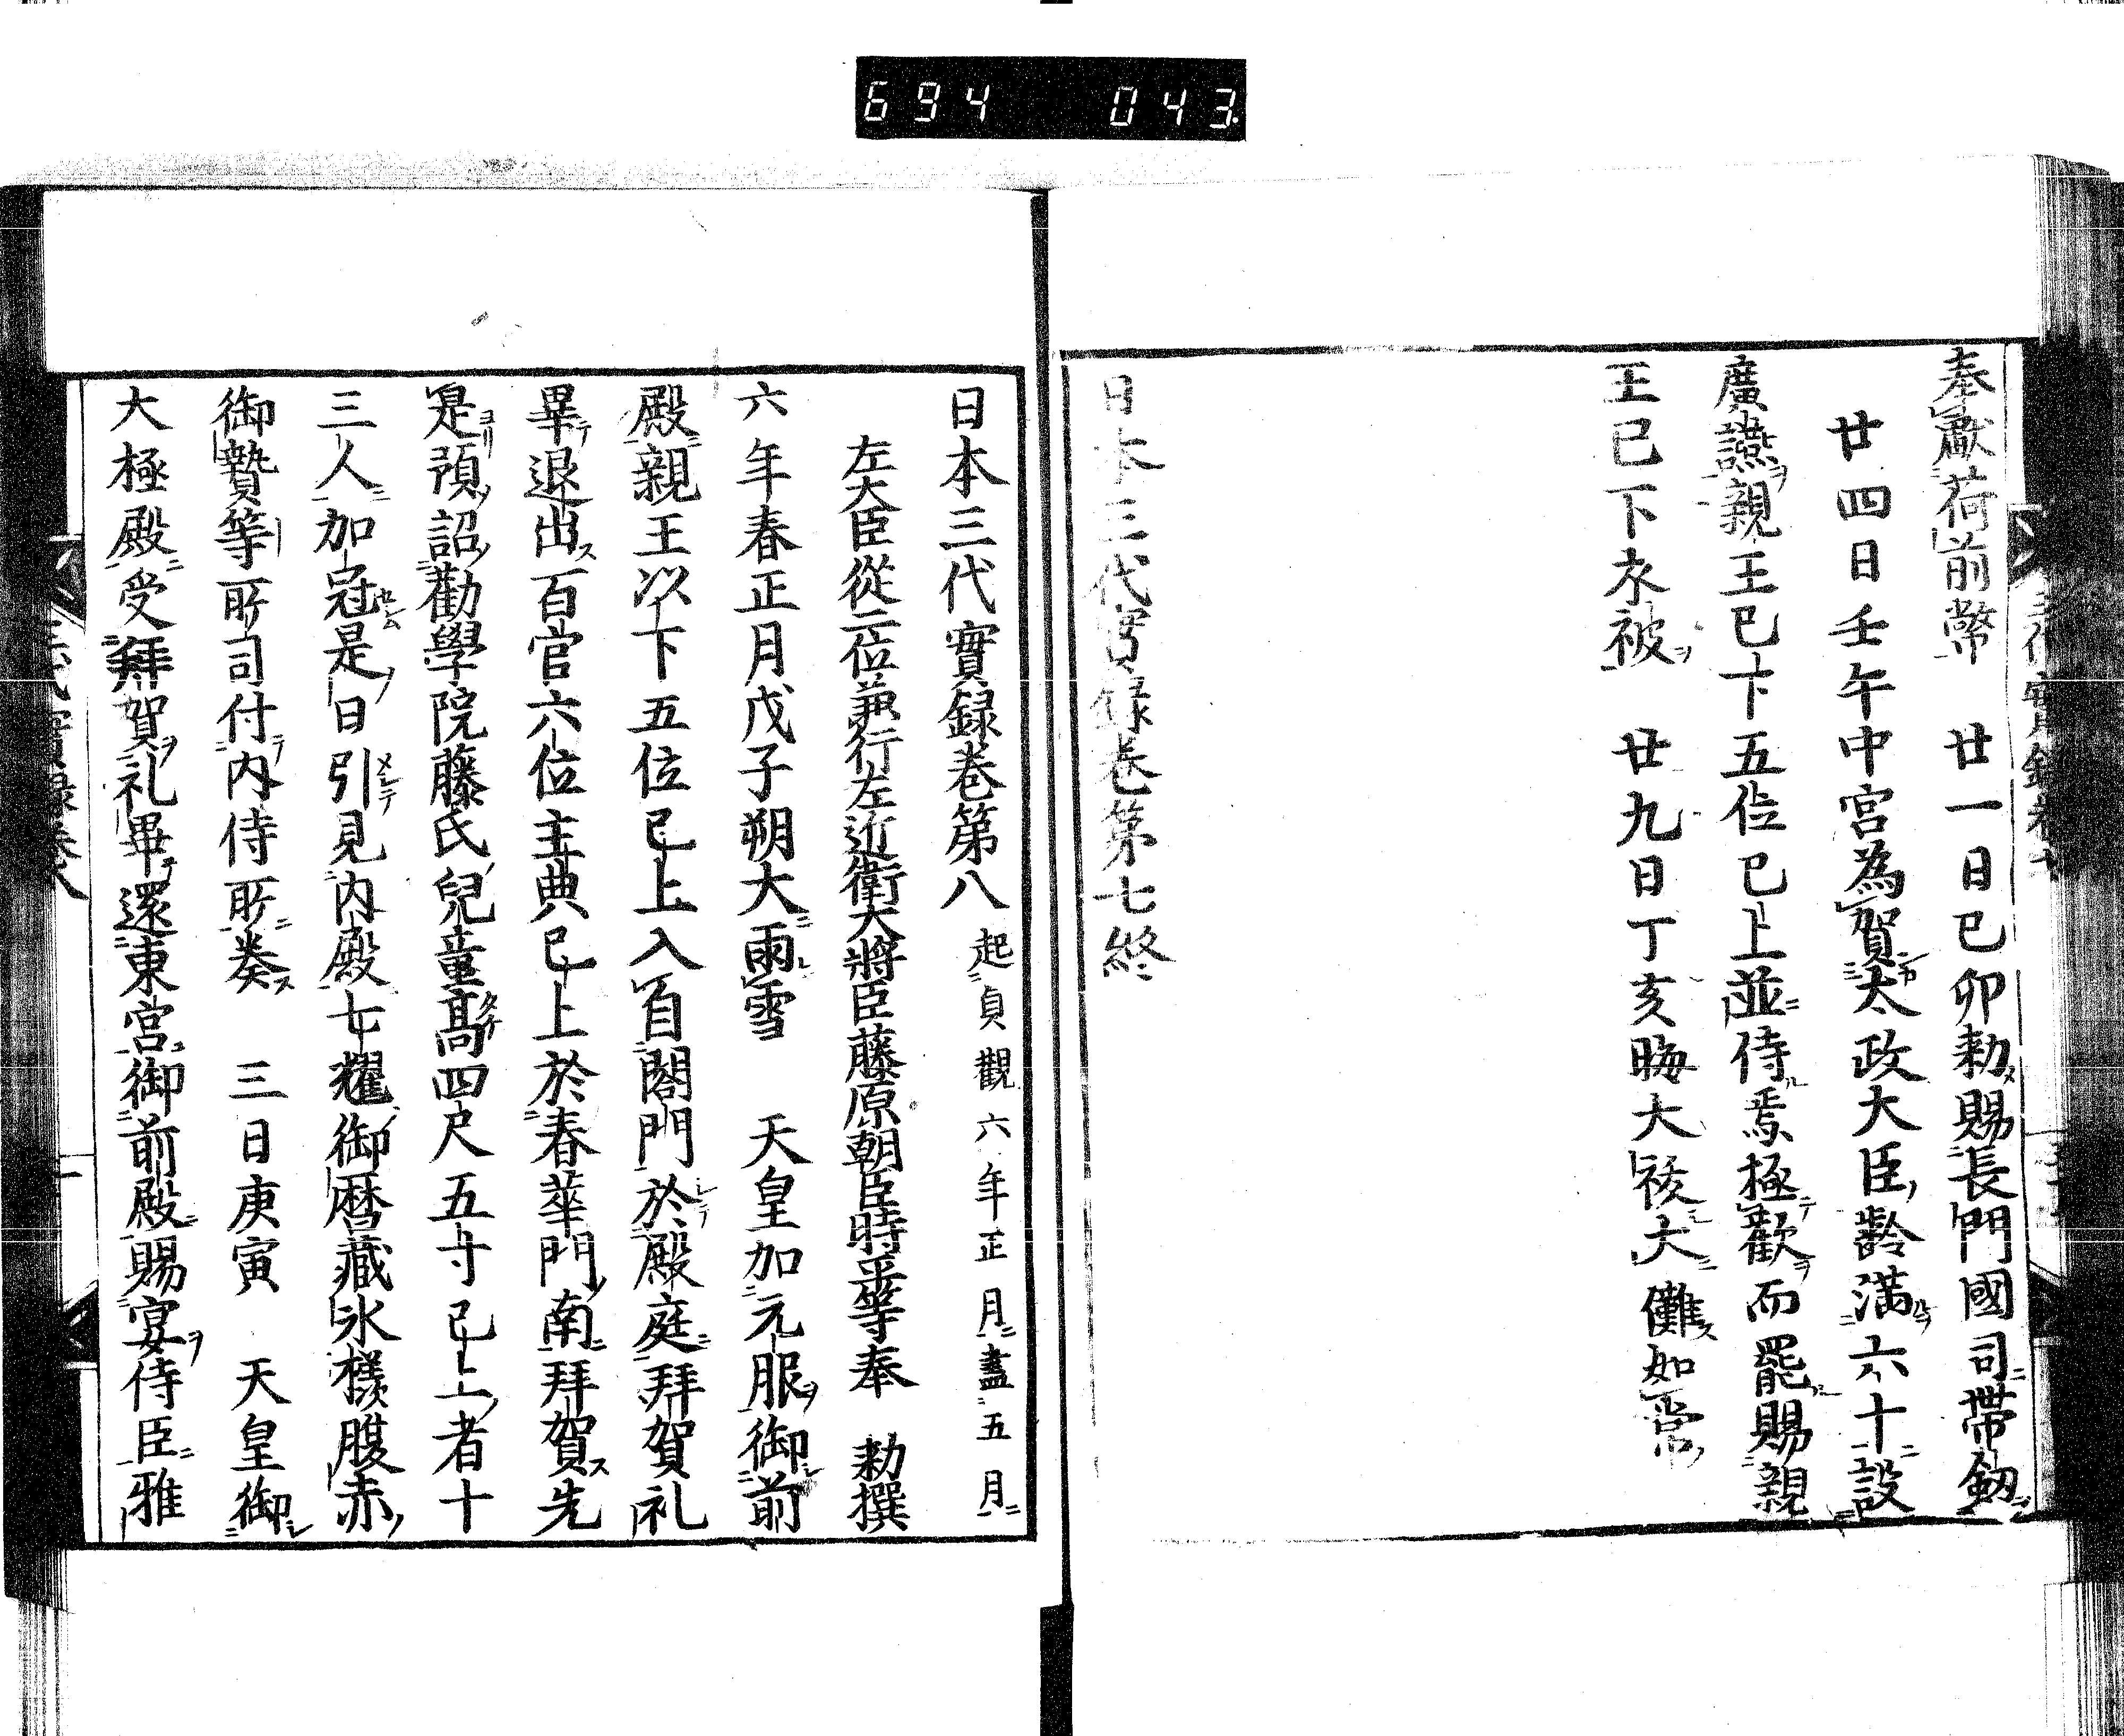 694 043
奉獻荷前幣　廿一日己卯勅賜長門國司帶劔
廿四日壬午中宮為賀太政大臣齡滿六十設
廣讌親王已下五位已上並侍焉極歡而罷賜親
王已下衣被　廿九日丁亥晦大祓大儺如常
日本三代實録卷第七終
日本三代實録卷第八 起貞觀六年正月盡五月
左大臣從二位兼行左近衛大將臣藤原朝臣時平等奉　勅撰
六年春正月戊子朔大雨雪　天皇加元服御前
殿親王以下五位已上入自閤門於殿庭拜賀礼
畢退出百官六位主典已上於春華門南拜賀先
是預詔勸學院藤氏兒童高四尺五寸已上者十
三人加冠是日引見内殿七耀御暦藏氷樣腹赤
御贄等所司付内侍所奏　三日庚寅　天皇御
大極殿受拜賀礼畢還東宮御前殿賜宴侍臣雅